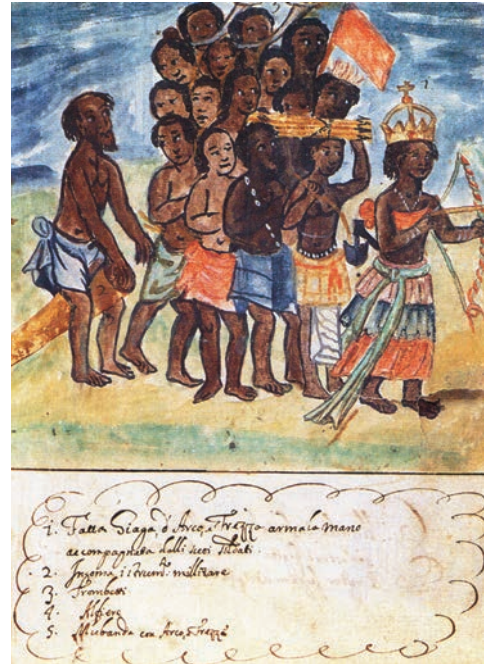 1. Fatta Giaga, d'Arco, e Frezza arma la mano
accompagnata dalli suoi Soldati.
2. Ingoma istrumto. militare
3. Trombetti
4. Alfiere
5. con Arco, e Frezze